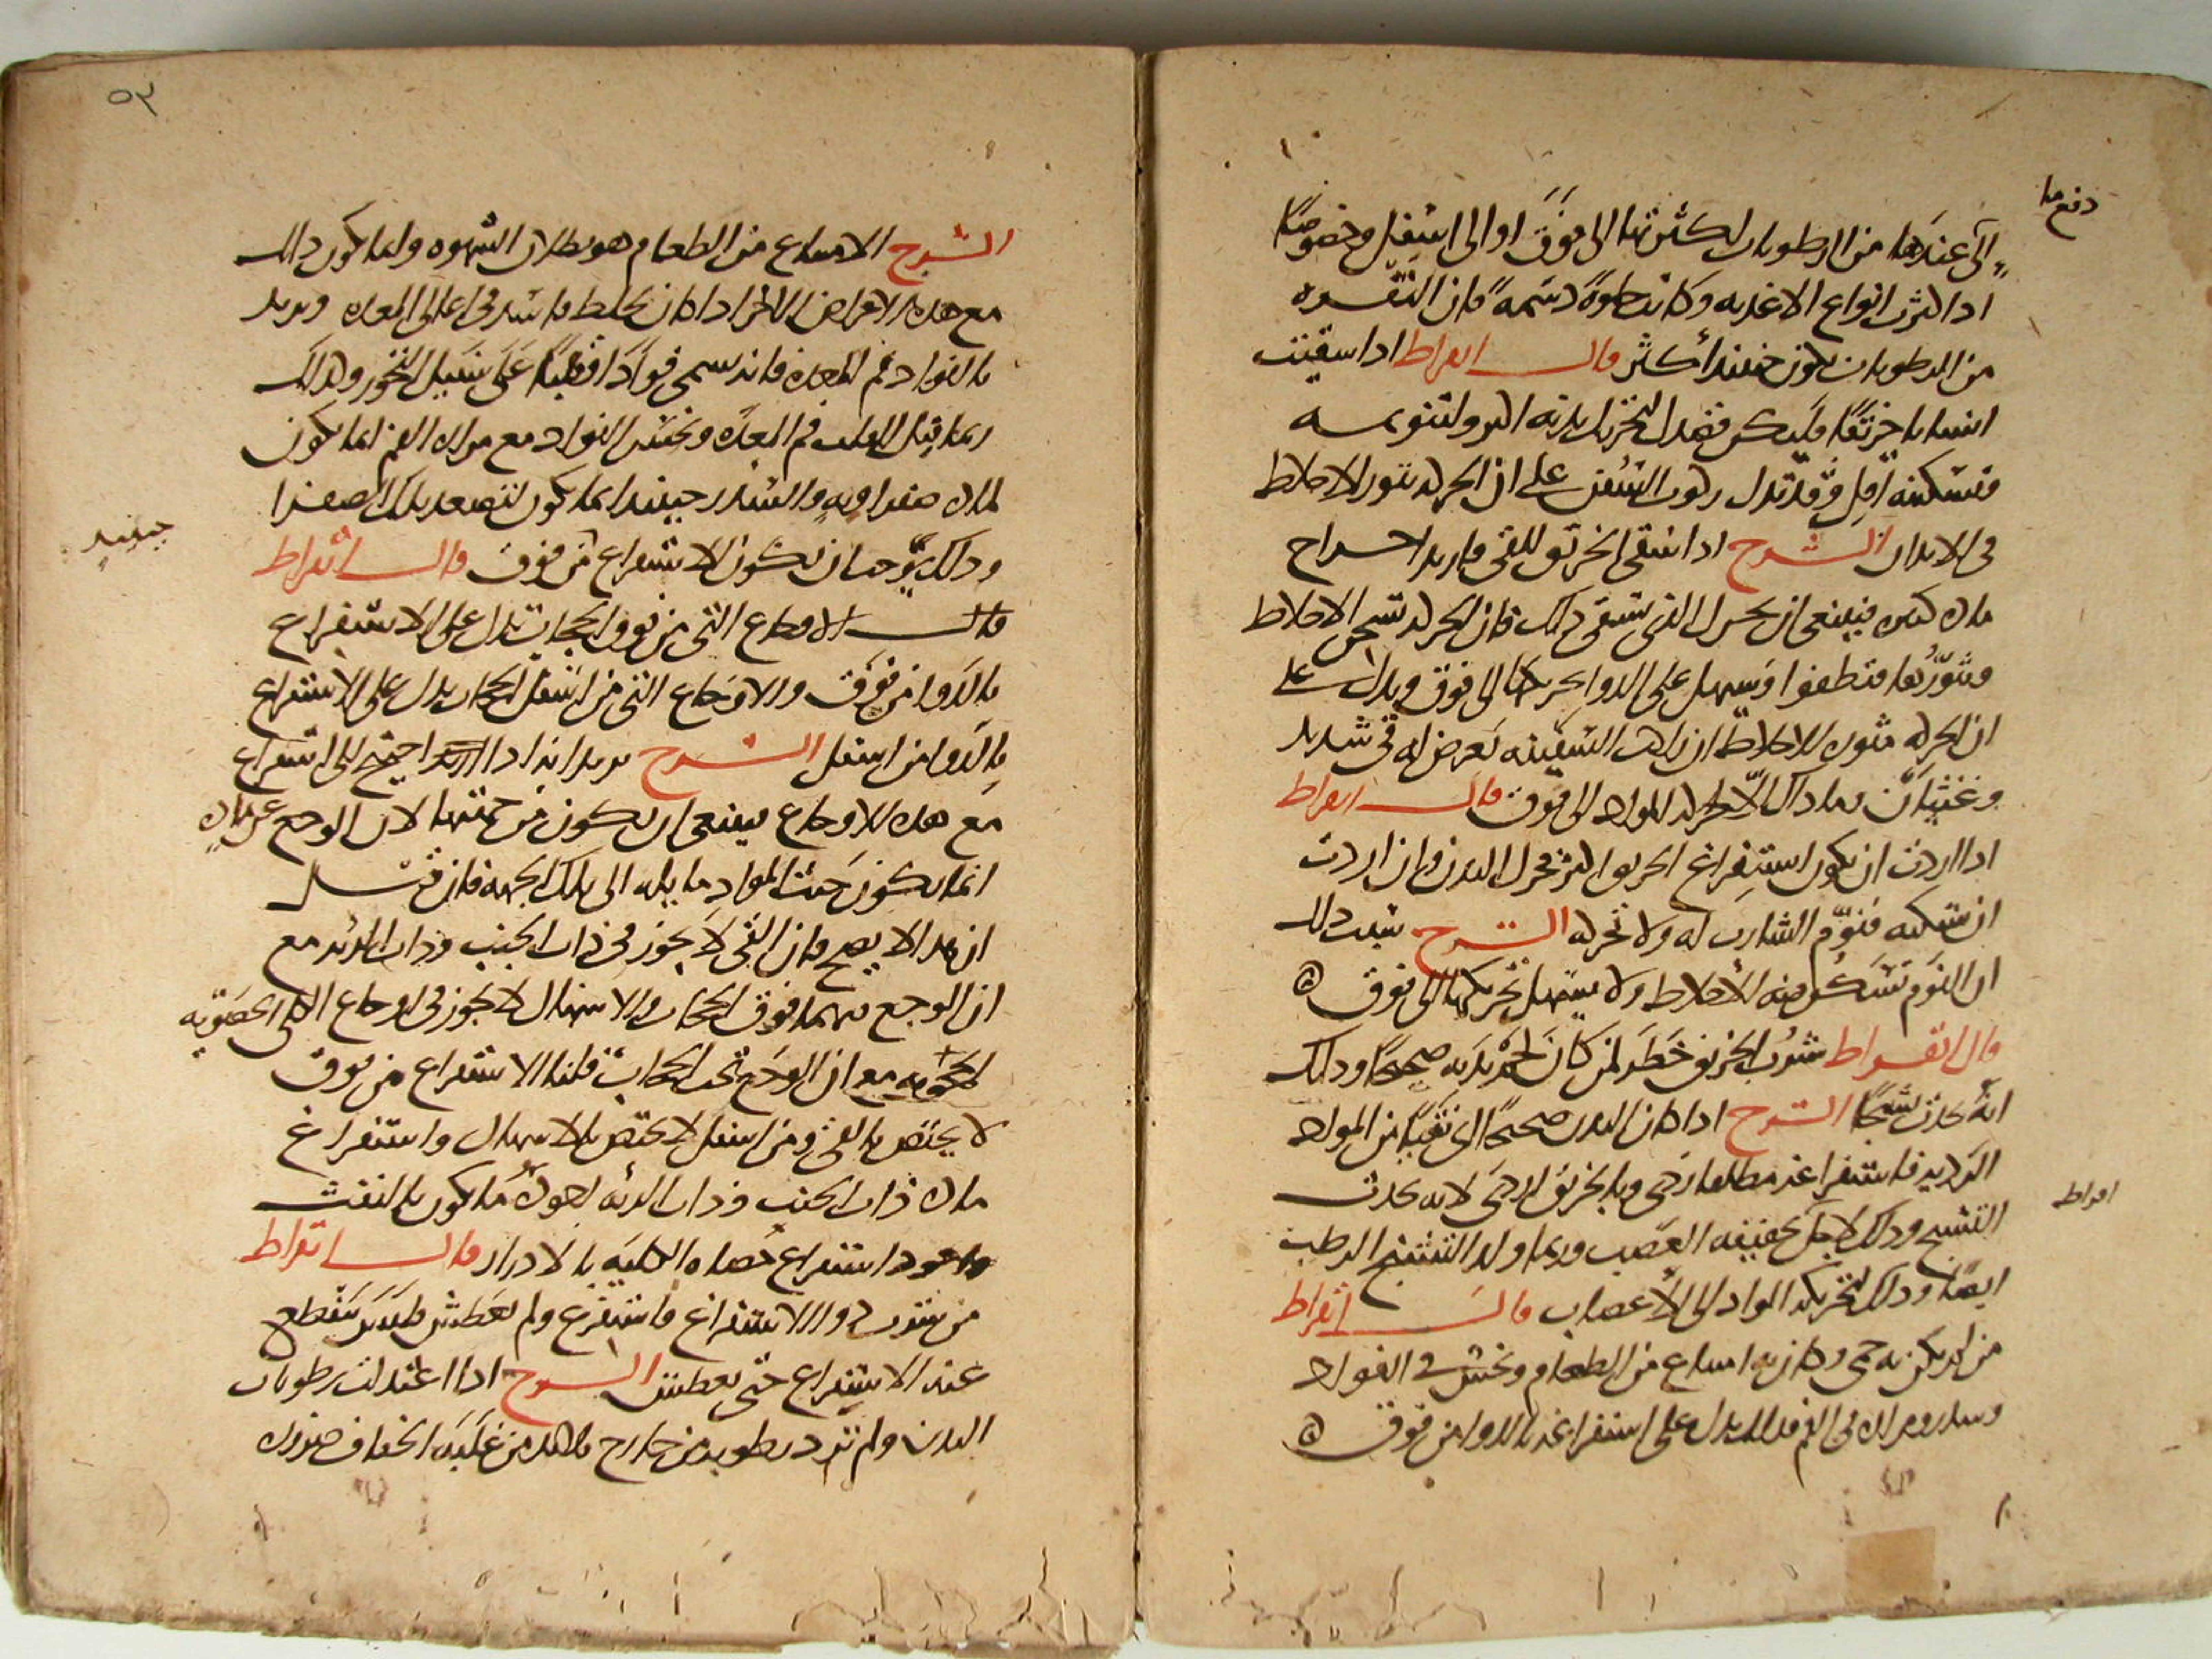 دفع ما
الى عندها من الرطوبات لكثرتها الى فوق او الى اسفل وخصوصا
اذا كثرت انواع الاغذيه وكانت حلوة دسمة فان النفره
من الرطوبات يكون حينئذ أكثر قال ابقراط اذا سقيت
انسانا خربقا فليكن قصدك لتحريك بدنه اكثر ولتنويمه
وتسكينه اقل وقد تدل ركوب السفن على ان الحركه تثور الاخلاط
فى الابدان الشرح اذا سقى الخربق للقى واريد اخراج
ماده كثيره فينبغى ان يحرك الذى سقى ذلك فان الحركه تسخن الاخلاط
وتثورها فتطفوا ويسهل على الدوا تحريكها الى فوق ويدل على
ان الحركه مثوره للاخلاط ان راكب السفينه يعرض له قى شديد
وغثيان وما ذاك الا لحركه المواد الى فوق قال ابقراط
اذا اردت ان يكون استفراغ الخربق اكثر فحرك البدن وان اردت
ان تسكنه فنوم الشارب له ولا تحركه الشرح سبب ذلك
ان النوم تسكن منه الأخلاط ولا يسهل تحريكها الى فوق
قال ابقراط شرب الخربق خطر لمن كان لحم بدنه صحيحا وذلك
انه يحدث تشنجا الشرح اذا كان البدن صحيحا اى نقيا من المواد
الرديه فاستفراغه مطلقا ردى وبالخربق اردى لانه يحدث
التشنج وذلك لاجل تجفيفه العصب وربما ولد التشنج الرطب
افراط
ايضا وذلك لتحريكه المواد الى الأعصاب قال ابقراط
من لم يكن به حمى وكان به امتناع من الطعام ونخس فى الفواد
وسدر ومراره فى الفم فذلك يدل على استفراغه بالدوا من فوق
٥٣
الشرح الامتناع من الطعام هو بطلان الشهوه وانما يكون ذلك
مع هذه الاعراض الاخر اذا كان لخلط فاسد فى اعالى المعده ويريد
بالفواد فم المعده فانه يسمى فوادا وقلبا على سبيل التجوز وكذلك
ربما قيل للقلب فم المعده ونخس الفواد مع مراره الفم انما يكون
لماده صفراويه والسدر حينئذ انما يكون لتصعد تلك الصفرا
حينئذ
وذلك يوجب ان يكون الاستفراغ من فوق قال ابقراط
قال الاوجاع التى من فوق الحجاب تدل على الاستفراغ
بالدوا من فوق والاوجاع التى من اسفل الحجاب تدل على الاستفراغ
بالدوا من اسفل الشرح يريد انه اذا احتيج الى استفراغ
مع هذه الاوجاع فينبغى ان يكون من جهتها لان الوجع عن ماده
انما يكون حيث المواد مايله الى تلك الجهه فان قيل
ان هذا لا يصح فان القى لا يجوز فى ذات الجنب وذات الرئه مع
ان الوجع فيهما فوق الحجاب والاسهال لا يجوز فى اوجاع الكلى الحصويه
مع ان الوجع تحت الحجاب قلنا الاستفراغ من فوق
لا يختص بالقى ومن اسفل لا يختص بالاسهال واستفراغ
ماده ذات الجنب وذات الرئه اجوده ما يكون بالنفث
واجود استفراغ حصاه الكليه بالادرار قال ابقراط
من شرب دوا الاستفراغ فاستفرغ ولم يعطش فليس ينقطع
عنه الاستفراغ حتى يعطش الشرح اذا اعتدلت رطوبات
البدن ولم ترد رطوبه من خارج فلابد من غلبه الجفاف ضروره